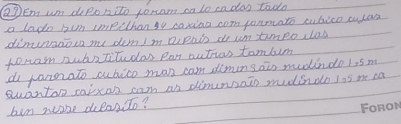 27) Em um depósito foram colocadas todo
a lado num impilhar 90 caixas com formato cubico cujas
dimensãoes me dem 1 m Depois de um tempo elas
foram substituidas Por outras tambem
de formato cubico mas com dimensãis medindo 1,5 m
Quantas caixas com as dimensãis medindo 1,5 m ca
bem nesse deposito?
FORON